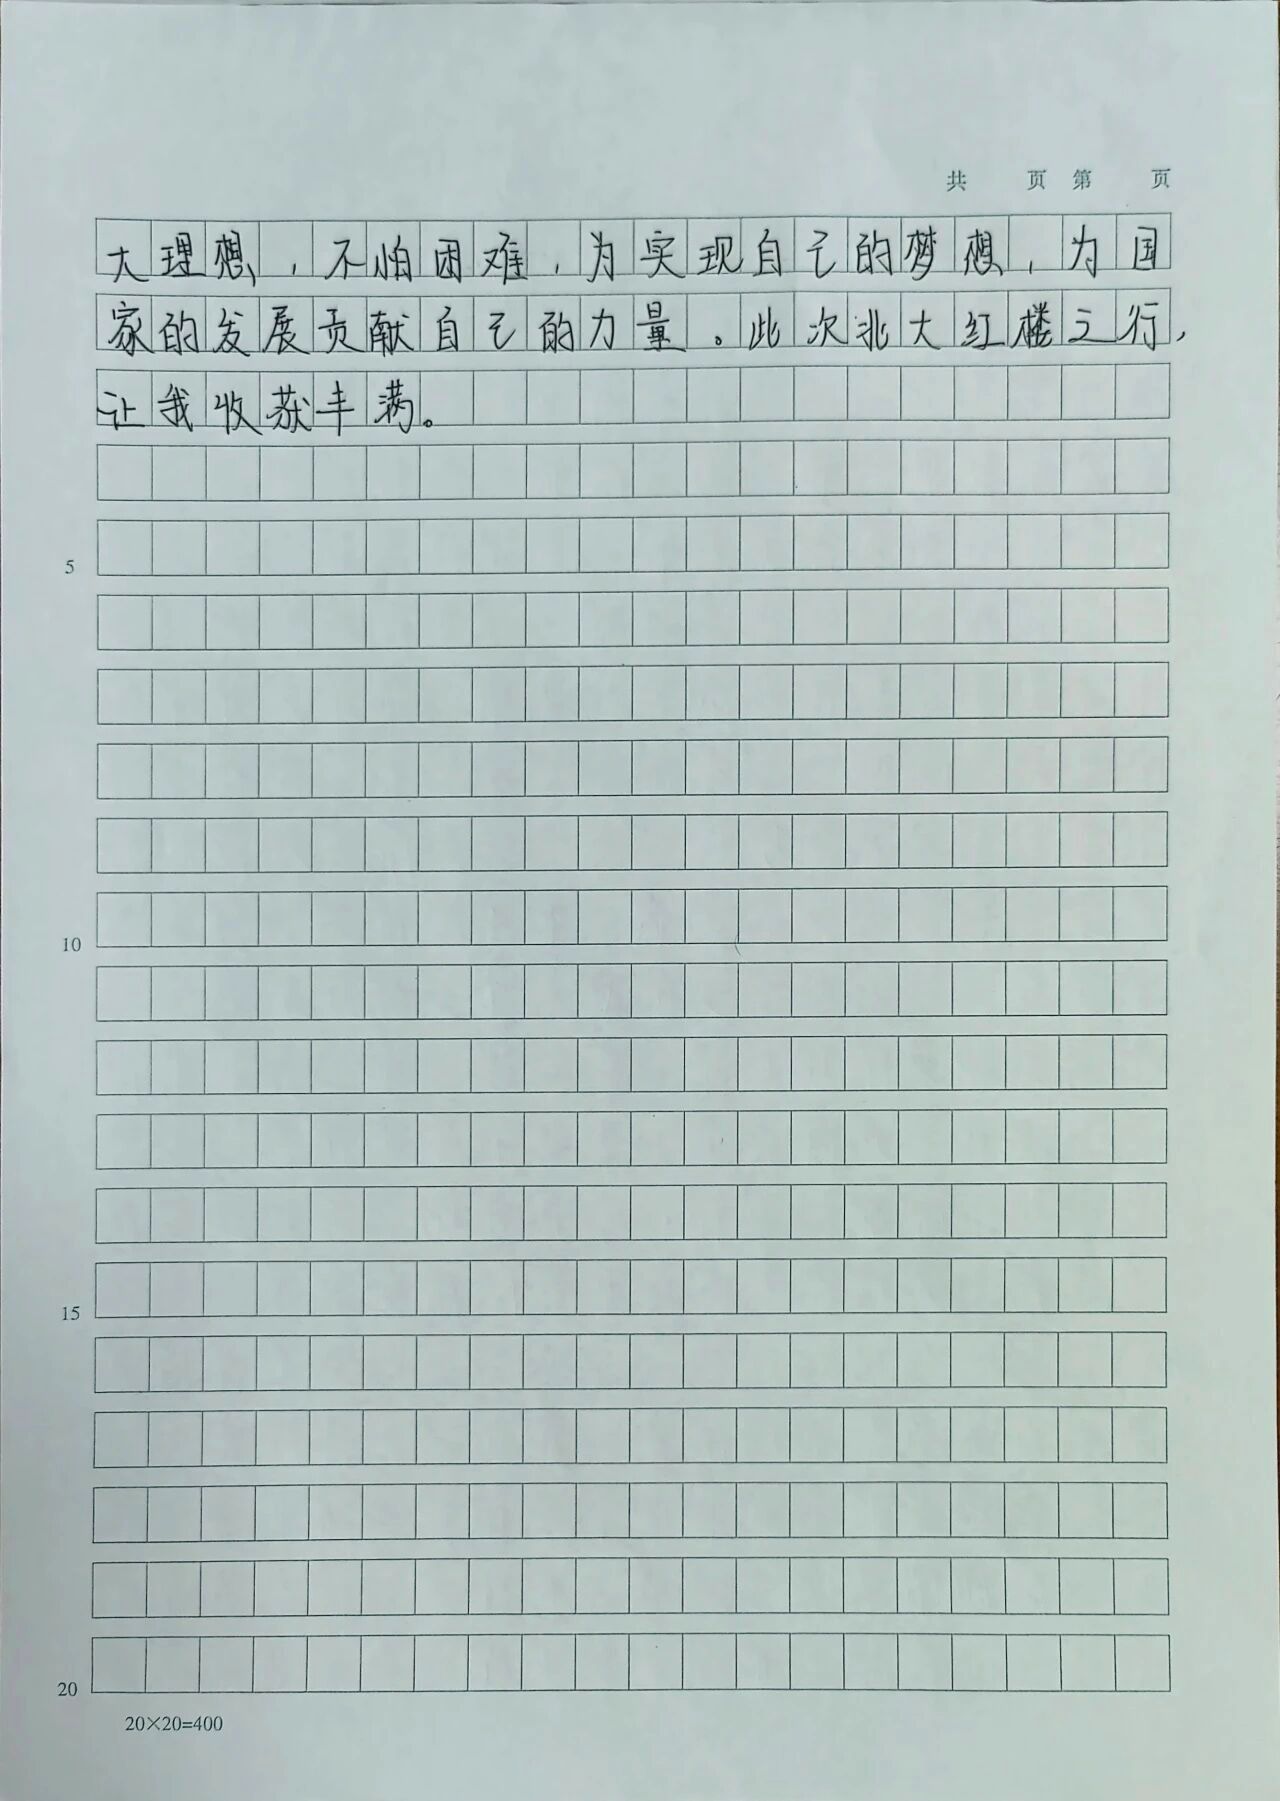 共 页 第 页
大理想，不怕困难，为实现自己的梦想，为国
家的发展贡献自己的力量。此次北大红楼之行，
让我收获丰满。
5
10
15
20
20×20=400